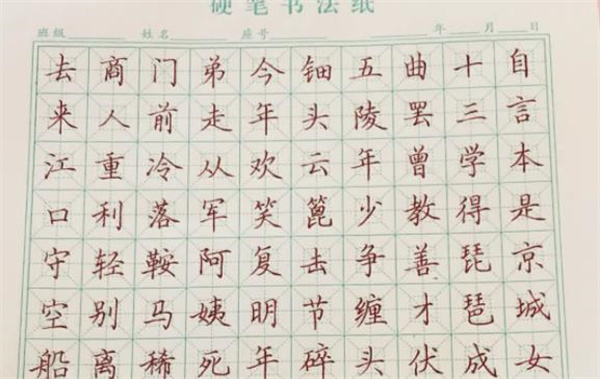 硬笔书法纸
班级 姓名 座号 年 月 日
自言本是京城女
十三学得琵琶成
曲罢曾教善才伏
五陵年少争缠头
钿头云篦击节碎
今年欢笑复明年
弟走从军阿姨死
门前冷落鞍马稀
商人重利轻别离
去来江口守空船